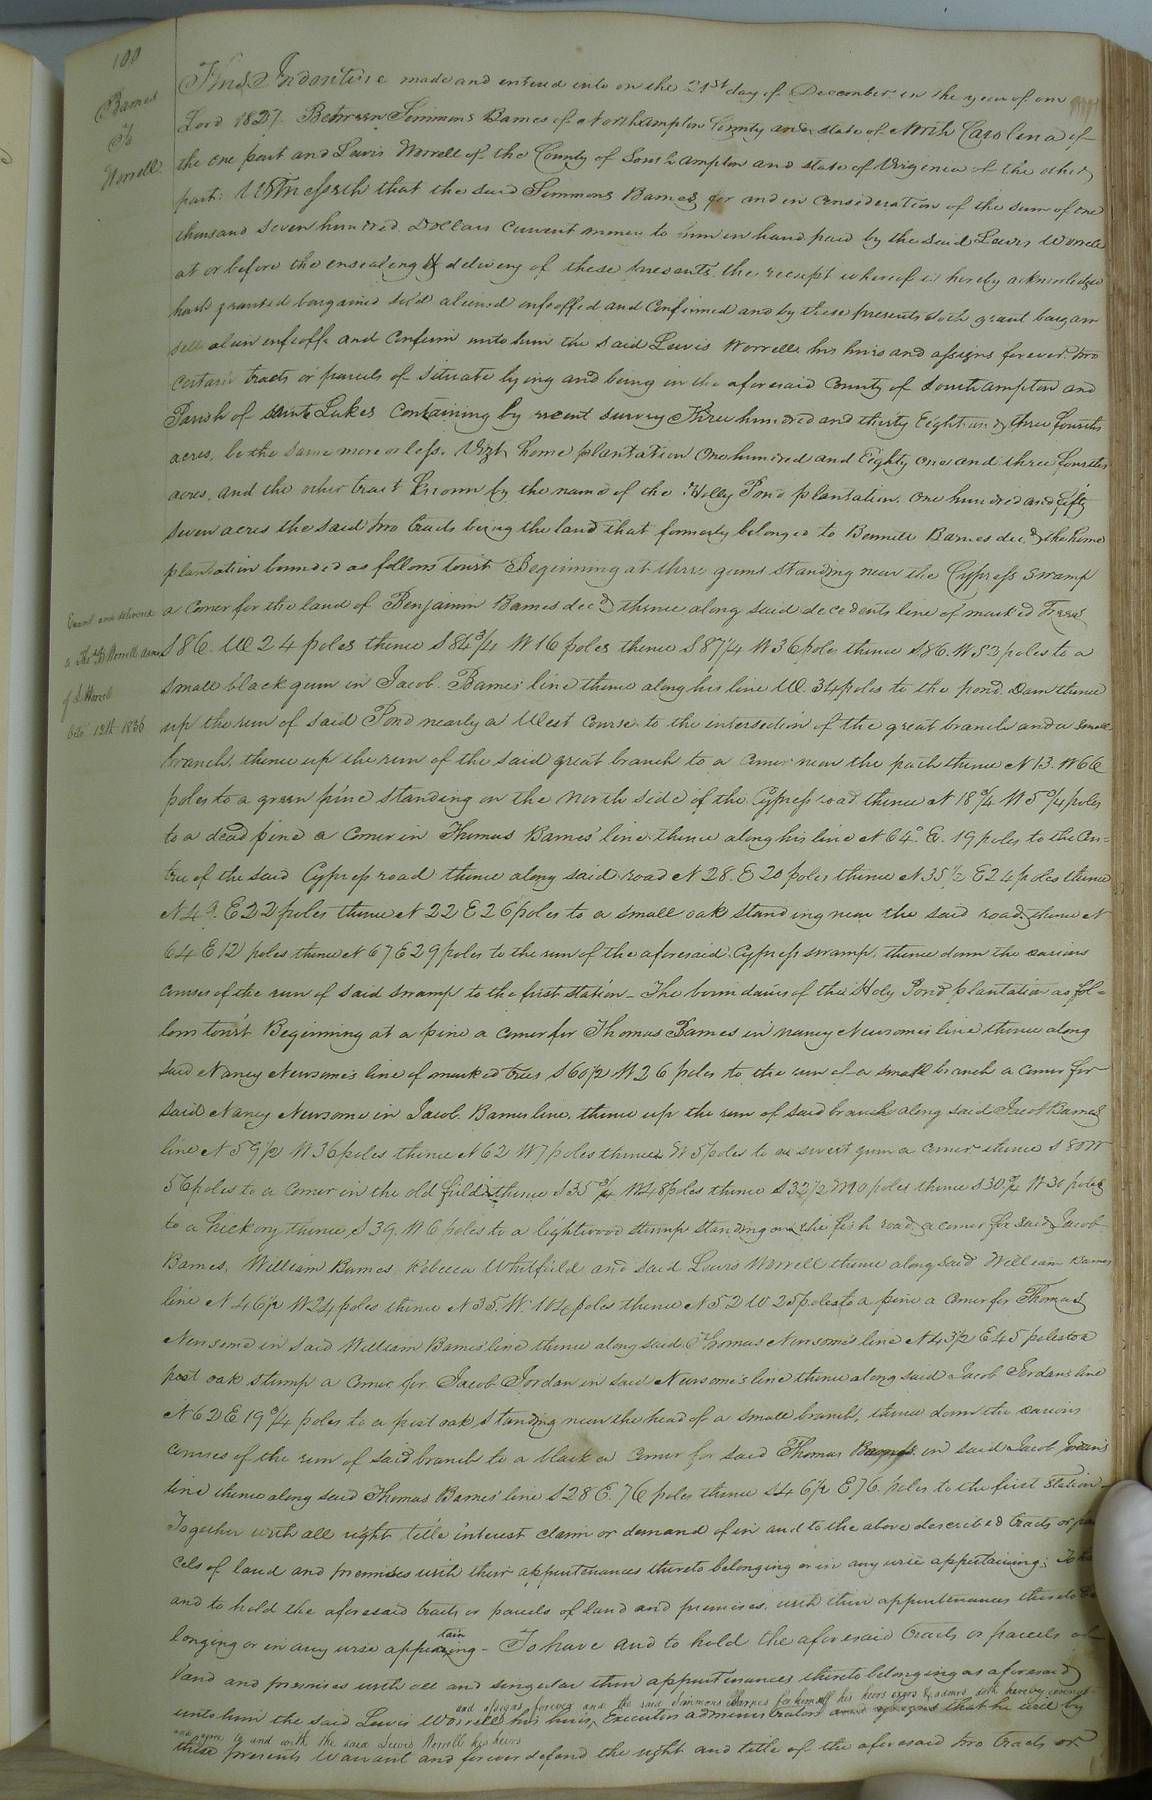 100
Barnes
To
Worrell
This Indenture made and entered into on the 21st day of December in the year of our
Lord 1827. Between Simmons Barnes of Northampton County and state of North Carolina of
the one part and Lewis Worrell of the County of Southampton and state of Virginia of the other
part: Witnesseth that the said Simmons Barnes for and in consideration of the sum of one
thousand seven hundred Dollars current money to him in hand paid by the said Lewis Worrell
at or before the ensealing & delivery of these presents the receipt whereof is hereby acknowledged
hath granted bargained sold aliened enfeoffed and confirmed and by these presents doth grant bargain
sell alien enfeoff and confirm unto him the said Lewis Worrell his heirs and assigns forever two
certain tracts or parcels of situate lying and being in the aforesaid County of Southampton and
Parish of Saint Lukes containing by recent survey Three hundred and thirty Eight and three fourths
acres, be the same more or less. Vizt home plantation One hundred and Eighty one and three fourths
acres, and the other tract known by the name of the Holly Pond plantation, one hundred and fifty
seven acres the said two tracts being the land that formerly belonged to Bennett Barnes decd & the home
plantation bounded as follows towit Beginning at three gums standing near the Cypress swamp
a corner for the land of Benjamin Barnes decd thence along said decedents line of marked Trees
Examd and delivered
to Tho B Worrell Admr
of L Worrell
Octo 13th 1836
S 86. W 24 poles thence S 84 3/4 W 16 poles thence S 87 1/4 W 36 poles thence S 86. W 53 poles to a
small black gum in Jacob Barnes line thence along his line W. 34 poles to the pond Dam thence
up the run of said Pond nearly a West course to the intersection of the great branch and a small
branch, thence up the run of the said great branch to a corner near the path thence N 13. W 66
poles to a green pine standing on the North side of the Cypress road thence N 18 3/4 W 5 3/4 poles
to a dead pine a corner in Thomas Barnes' line thence along his line N 64° E. 19 poles to the Cen=
tre of the said Cypress road thence along said road N 28. E 20 poles thence N 35 1/2 E 24 poles thence
N 49. E 22 poles thence N 22 E 26 poles to a small oak standing near the said road, thence N
64 E 12 poles thence N 67 E 29 poles to the run of the aforesaid Cypress swamp, thence down the various
courses of the run of said swamp to the first station – The boundaries of the Holy Pond plantation as fol=
lows towit Beginning at a pine a corner for Thomas Barnes in Nancy Newsome's line thence along
said Nancy Newsome's line of marked trees S 60 1/2 W 26 poles to the run of a small branch a corner for
said Nancy Newsome in Jacob Barnes line, thence up the run of said branch along said Jacob Barnes
line N 59 1/2 W 36 poles thence N 62 W 7 poles thence W 5 poles to a sweet gum a corner thence S 80 W
56 poles to a corner in the old field thence S 35 3/4 W 48 poles thence S 32 1/2 W 10 poles thence S 30 3/4 W 30 poles
to a hickory thence S 39. W 6 poles to a lightwood stump standing on the fish road a corner for said Jacob
Barnes, William Barnes, Rebecca Whitfield and said Lewis Worrell thence along said William Barnes
line N 46 1/2 W 24 poles thence N 35. W. 104 poles thence N 52 W 25 poles to a pine a corner for Thomas
Newsome in said William Barnes' line thence along said Thomas Newsome's line N 43 1/2 E 45 poles to a
post oak stump a corner for Jacob Jordan in said Newsome's line thence along said Jacob Jordans line
N 62 E 19 3/4 poles to a post oak standing near the head of a small branch, thence down the various
courses of the run of said branch to a black a corner for said Thomas Barnes in said Jacob Jordan's
line thence along said Thomas Barnes' line S 28 E. 76 poles thence S 46 1/2 E 76. poles to the first station –
Together with all right title interest claim or demand of in and to the above described tracts or par
cels of land and premises with their appurtenances thereto belonging or in any wise appertaining: To have
and to hold the aforesaid tracts or parcels of land and premises, with their appurtenances thereto be
longing or in any wise appertaining – To have and to hold the aforesaid tracts or parcels of
land and premises with all and singular their appurtenances thereto belonging as aforesaid
and assigns forever and the said Simmons Barnes for himself his heirs exors & admrs doth hereby covenant
unto him the said Lewis Worrell his heirs, Executors administrators and assigns that he will by
and agree to and with the said Lewis Worrell his heirs
these presents Warrant and forever defend the right and title of the aforesaid two tracts or